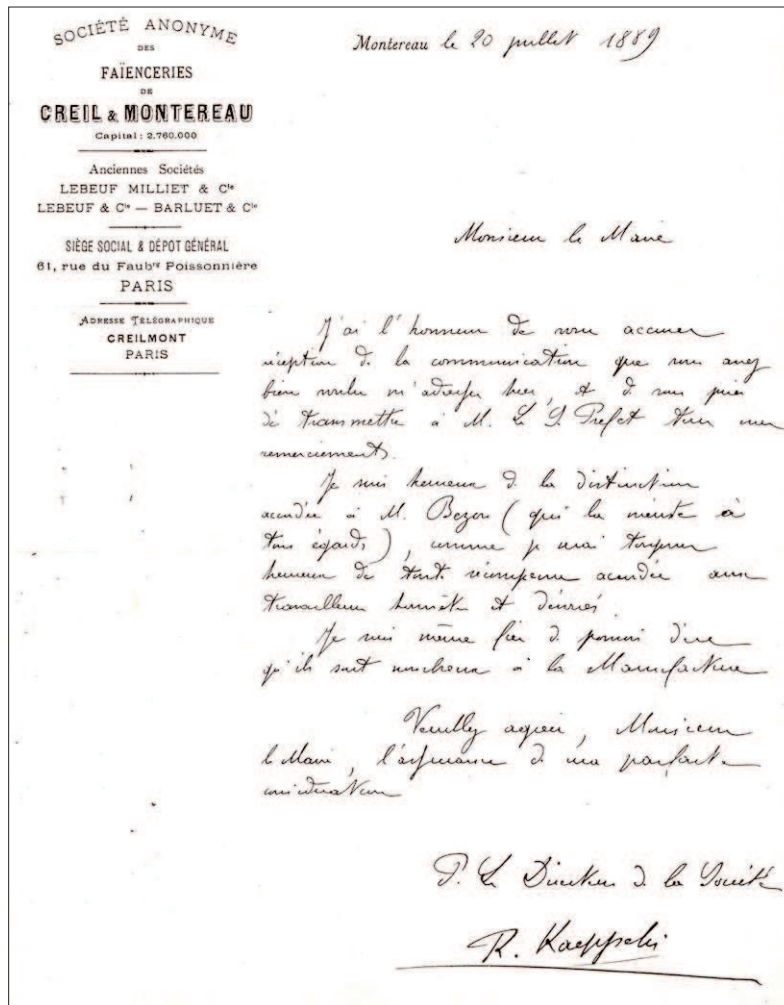 SOCIÉTÉ ANONYME
DES
FAÏENCERIES
DE
CREIL & MONTEREAU
Capital : 2,760,000
Anciennes Sociétés
LEBEUF MILLIET & Cie
LEBEUF & Cie — BARLUET & Cie
SIÈGE SOCIAL & DÉPOT GÉNÉRAL
61, rue du Faubrg Poissonnière
PARIS
ADRESSE TÉLÉGRAPHIQUE
CREILMONT
PARIS
Montereau le 20 juillet 1889
Monsieur le Maire
J'ai l'honneur de vous accuser
réception de la communication que vous avez
bien voulu m'adresser hier, et de vous prier
de transmettre à M. Le S. Préfet tous mes
remerciements.
Je suis heureux de la distinction
accordée à M. Bezon (qui la mérite à
tous égards), comme je suis toujours
heureux de toute récompense accordée aux
travailleurs honnêtes et dévoués
Je suis même fier de pouvoir dire
qu'ils sont nombreux à la Manufacture
Veuillez agréer, Monsieur
le Maire, l'assurance de ma parfaite
considération
P. Le Directeur de la Société
R. Kaeppelin